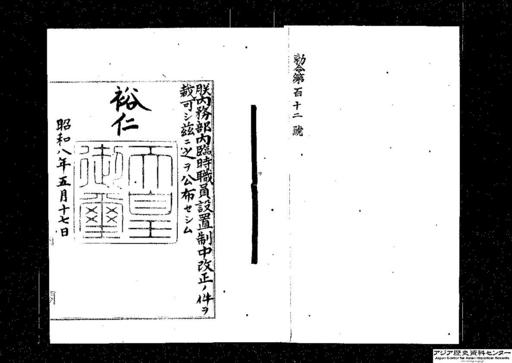 勅令第百十二號
朕内務部内臨時職員設置制中改正ノ件ヲ
裁可シ茲ニ之ヲ公布セシム
裕仁
天皇御璽
昭和八年五月十七日
アジア歴史資料センター
Japan Center for Asian Historical Records